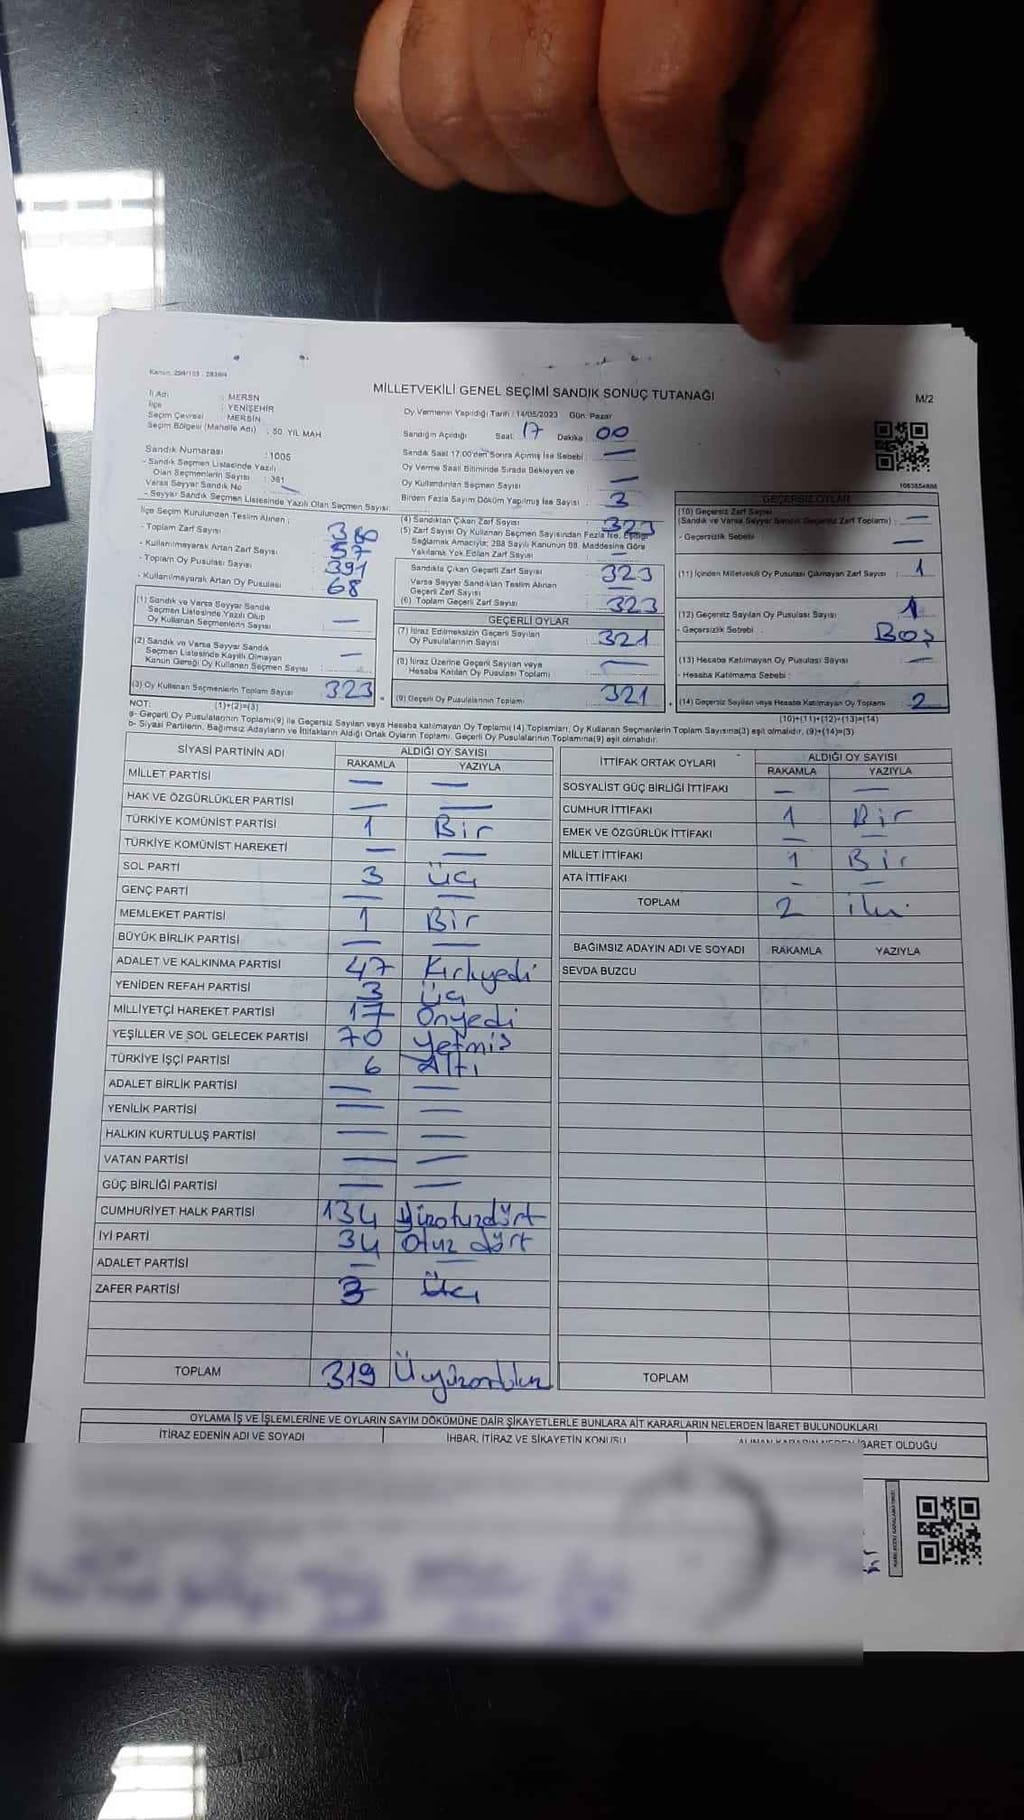 Kanun: 298/103 : 2839/4
MİLLETVEKİLİ GENEL SEÇİMİ SANDIK SONUÇ TUTANAĞI
M/2
İl Adı : MERSN
İlçe : YENİŞEHİR
Seçim Çevresi : MERSİN
Seçim Bölgesi (Mahalle Adı) : 50. YIL MAH
Sandık Numarası : 1005
- Sandık Seçmen Listesinde Yazılı
Olan Seçmenlerin Sayısı : 361
Varsa Seyyar Sandık No —
- Seyyar Sandık Seçmen Listesinde Yazılı Olan Seçmen Sayısı
Oy Vermenin Yapıldığı Tarih : 14/05/2023 Gün: Pazar
Sandığın Açıldığı Saat: 17 Dakika: 00
Sandık Saat 17:00'den Sonra Açılmış İse Sebebi : —
Oy Verme Saati Bitiminde Sırada Bekleyen ve
Oy Kullandırılan Seçmen Sayısı : —
Birden Fazla Sayım Döküm Yapılmış İse Sayısı : 3
1063854886
İlçe Seçim Kurulundan Teslim Alınan :
- Toplam Zarf Sayısı : 380
- Kullanılmayarak Artan Zarf Sayısı : 57
- Toplam Oy Pusulası Sayısı : 391
- Kullanılmayarak Artan Oy Pusulası : 68
(1) Sandık ve Varsa Seyyar Sandık
Seçmen Listesinde Yazılı Olup
Oy Kullanan Seçmenlerin Sayısı : —
(2) Sandık ve Varsa Seyyar Sandık
Seçmen Listesinde Kayıtlı Olmayan
Kanun Gereği Oy Kullanan Seçmen Sayısı : —
(3) Oy Kullanan Seçmenlerin Toplam Sayısı 323
(4) Sandıktan Çıkan Zarf Sayısı : 323
(5) Zarf Sayısı Oy Kullanan Seçmen Sayısından Fazla İse, Eşitliği
Sağlamak Amacıyla; 298 Sayılı Kanunun 98. Maddesine Göre
Yakılarak Yok Edilen Zarf Sayısı : —
Sandıkta Çıkan Geçerli Zarf Sayısı : 323
Varsa Seyyar Sandıktan Teslim Alınan
Geçerli Zarf Sayısı : —
(6) Toplam Geçerli Zarf Sayısı : 323
GEÇERLİ OYLAR
(7) İtiraz Edilmeksizin Geçerli Sayılan
Oy Pusulalarının Sayısı : 321
(8) İtiraz Üzerine Geçerli Sayılan veya
Hesaba Katılan Oy Pusulası Toplamı : —
(9) Geçerli Oy Pusulalarının Toplamı : 321
GEÇERSİZ OYLAR
(10) Geçersiz Zarf Sayısı
(Sandık ve Varsa Seyyar Sandık Geçersiz Zarf Toplamı) : —
- Geçersizlik Sebebi : —
(11) İçinden Milletvekili Oy Pusulası Çıkmayan Zarf Sayısı : 1
(12) Geçersiz Sayılan Oy Pusulası Sayısı : 1
- Geçersizlik Sebebi : Boş
(13) Hesaba Katılmayan Oy Pusulası Sayısı : —
- Hesaba Katılmama Sebebi :
(14) Geçersiz Sayılan veya Hesaba Katılmayan Oy Toplamı : 2
NOT: (1)+(2)=(3)
(10)+(11)+(12)+(13)=(14)
a- Geçerli Oy Pusulalarının Toplamı(9) ile Geçersiz Sayılan veya Hesaba katılmayan Oy Toplamı(14) Toplamları, Oy Kullanan Seçmenlerin Toplam Sayısına(3) eşit olmalıdır, (9)+(14)=(3)
b- Siyasi Partilerin, Bağımsız Adayların ve İttifakların Aldığı Ortak Oyların Toplamı, Geçerli Oy Pusulalarının Toplamına(9) eşit olmalıdır.
SİYASİ PARTİNİN ADI ALDIĞI OY SAYISI
RAKAMLA YAZIYLA
MİLLET PARTİSİ — —
HAK VE ÖZGÜRLÜKLER PARTİSİ — —
TÜRKİYE KOMÜNİST PARTİSİ 1 Bir
TÜRKİYE KOMÜNİST HAREKETİ — —
SOL PARTİ 3 Üç
GENÇ PARTİ — —
MEMLEKET PARTİSİ 1 Bir
BÜYÜK BİRLİK PARTİSİ — —
ADALET VE KALKINMA PARTİSİ 47 Kırkyedi
YENİDEN REFAH PARTİSİ 3 Üç
MİLLİYETÇİ HAREKET PARTİSİ 17 Onyedi
YEŞİLLER VE SOL GELECEK PARTİSİ 70 Yetmiş
TÜRKİYE İŞÇİ PARTİSİ 6 Altı
ADALET BİRLİK PARTİSİ — —
YENİLİK PARTİSİ — —
HALKIN KURTULUŞ PARTİSİ — —
VATAN PARTİSİ — —
GÜÇ BİRLİĞİ PARTİSİ — —
CUMHURİYET HALK PARTİSİ 134 Yüzotuzdört
İYİ PARTİ 34 Otuz dört
ADALET PARTİSİ — —
ZAFER PARTİSİ 3 Üç
TOPLAM 319
İTTİFAK ORTAK OYLARI ALDIĞI OY SAYISI
RAKAMLA YAZIYLA
SOSYALİST GÜÇ BİRLİĞİ İTTİFAKI — —
CUMHUR İTTİFAKI 1 Bir
EMEK VE ÖZGÜRLÜK İTTİFAKI — —
MİLLET İTTİFAKI 1 Bir
ATA İTTİFAKI - —
TOPLAM 2 iki
BAĞIMSIZ ADAYIN ADI VE SOYADI RAKAMLA YAZIYLA
SEVDA BUZCU
TOPLAM
OYLAMA İŞ VE İŞLEMLERİNE VE OYLARIN SAYIM DÖKÜMÜNE DAİR ŞİKAYETLERLE BUNLARA AİT KARARLARIN NELERDEN İBARET BULUNDUKLARI
İTİRAZ EDENİN ADI VE SOYADI İHBAR, İTİRAZ VE ŞİKAYETİN KONUSU ALINAN KARARIN NEDEN İBARET OLDUĞU